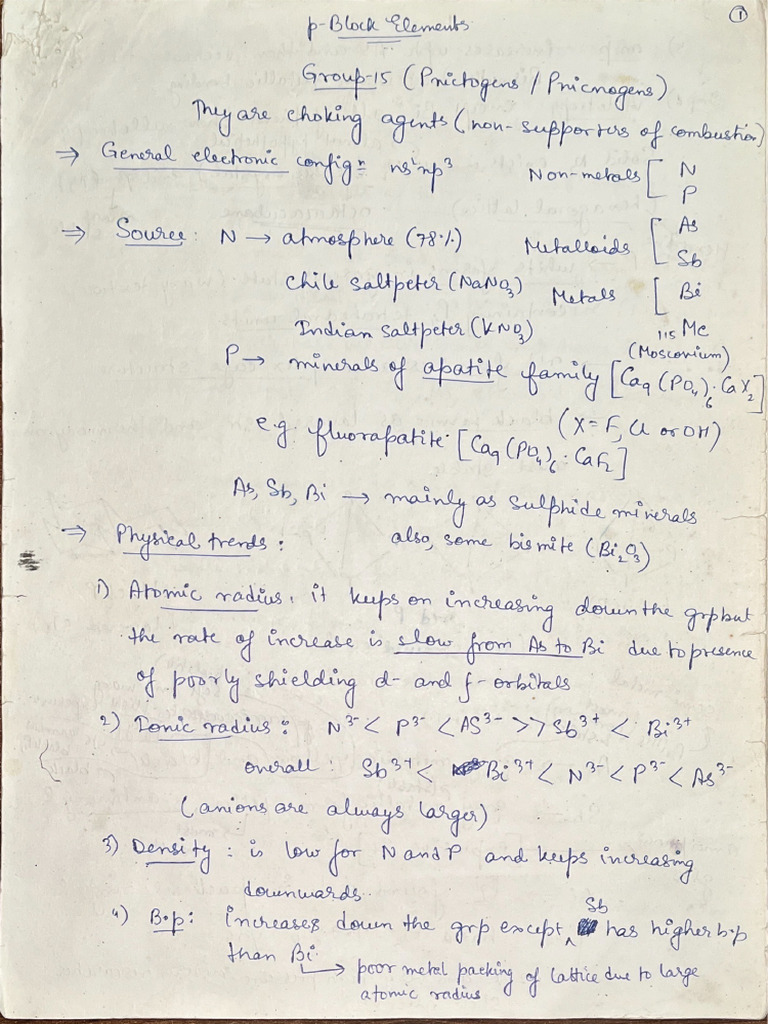 ①
p-Block Elements
Group-15 (Pnictogens / Pnicnogens)
They are choking agents (non-supporters of combustion)
⇒ General electronic configⁿ = ns²np³
Non-metals [ N
P
⇒ Source: N → atmosphere (78%)
Metalloids [ As
Sb
Chile saltpeter (NaNO₃)
Metals [ Bi
Indian saltpeter (KNO₃)
₁₁₅Mc
(Moscovium)
P → minerals of apatite family [Ca₉(PO₄)₆.CaX₂]
(X = F, Cl or OH)
e.g. fluorapatite [Ca₉(PO₄)₆.CaF₂]
As, Sb, Bi → mainly as sulphide minerals
also, some bismite (Bi₂O₃)
⇒ Physical trends:
1) Atomic radius. it keeps on increasing down the grp but
the rate of increase is slow from As to Bi due to presence
of poorly shielding d- and f-orbitals
2) Ionic radius: N³⁻ < P³⁻ < AS³⁻ >> Sb³⁺ < Bi³⁺
overall: Sb³⁺ < Bi³⁺ < N³⁻ < P³⁻ < As³⁻
(anions are always larger)
3) Density: is low for N and P and keeps increasing
downwards.
4) B.p: increases down the grp except Sb has higher b.p
than Bi.
→ poor metal packing of lattice due to large
atomic radius